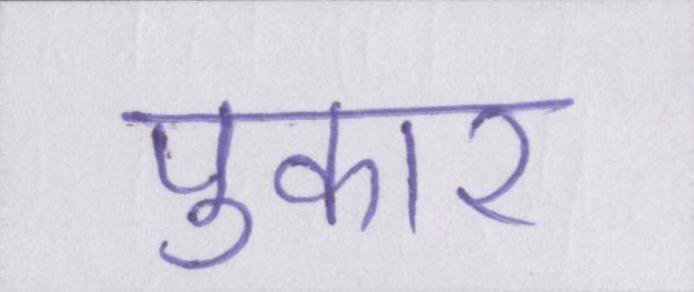 पुकार